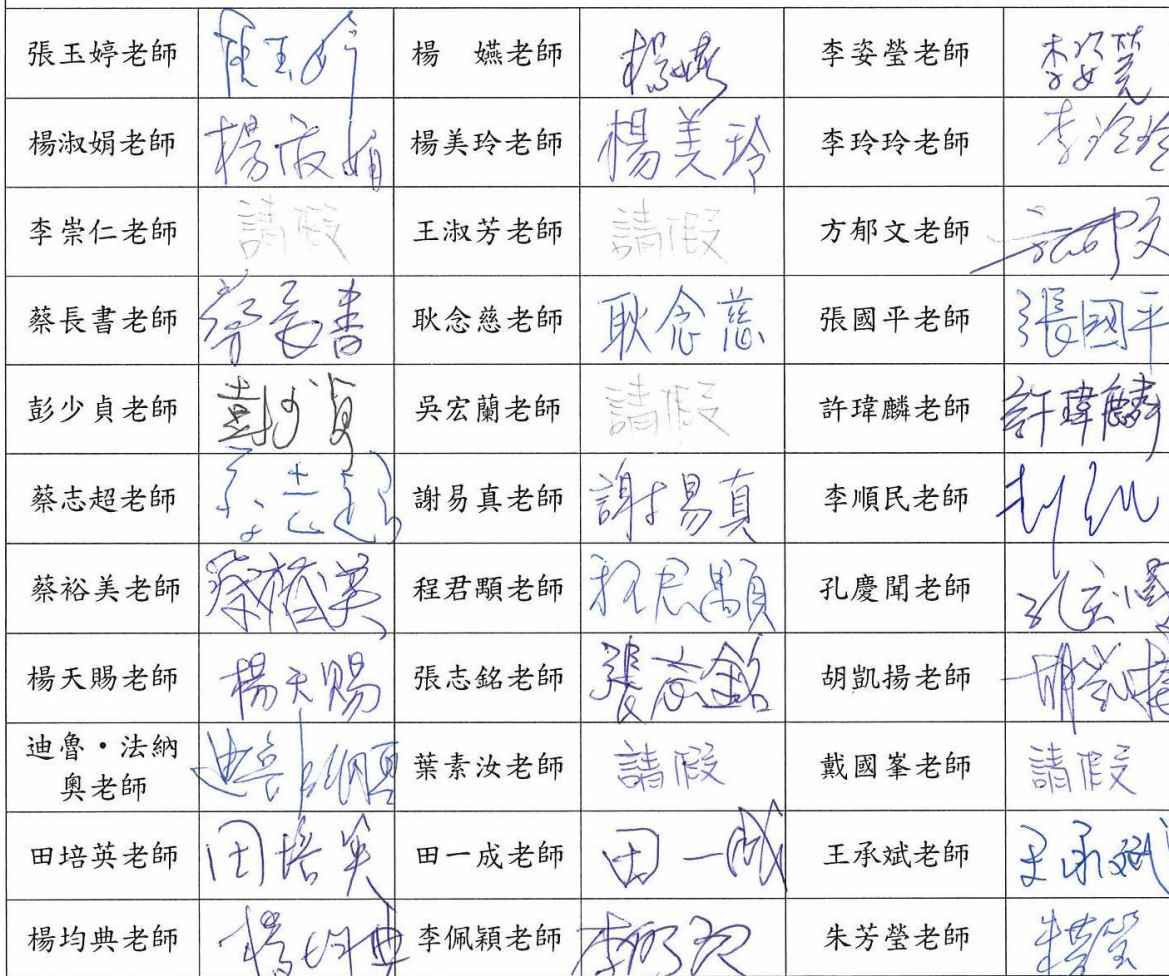 張玉婷老師 張玉婷 楊　嬿老師 楊嬿 李姿瑩老師 李姿瑩
楊淑娟老師 楊淑娟 楊美玲老師 楊美玲 李玲玲老師 李玲玲
李崇仁老師 請假 王淑芳老師 請假 方郁文老師 方郁文
蔡長書老師 蔡長書 耿念慈老師 耿念慈 張國平老師 張國平
彭少貞老師 彭少貞 吳宏蘭老師 請假 許瑋麟老師 許瑋麟
蔡志超老師 蔡志超 謝易真老師 謝易真 李順民老師
蔡裕美老師 蔡裕美 程君顒老師 程君顒 孔慶聞老師 孔慶聞
楊天賜老師 楊天賜 張志銘老師 張志銘 胡凱揚老師 胡凱揚
迪魯・法納
奧老師 葉素汝老師 請假 戴國峯老師 請假
田培英老師 田培英 田一成老師 田一成 王承斌老師 王承斌
楊均典老師 楊均典 李佩穎老師 李佩穎 朱芳瑩老師 朱芳瑩